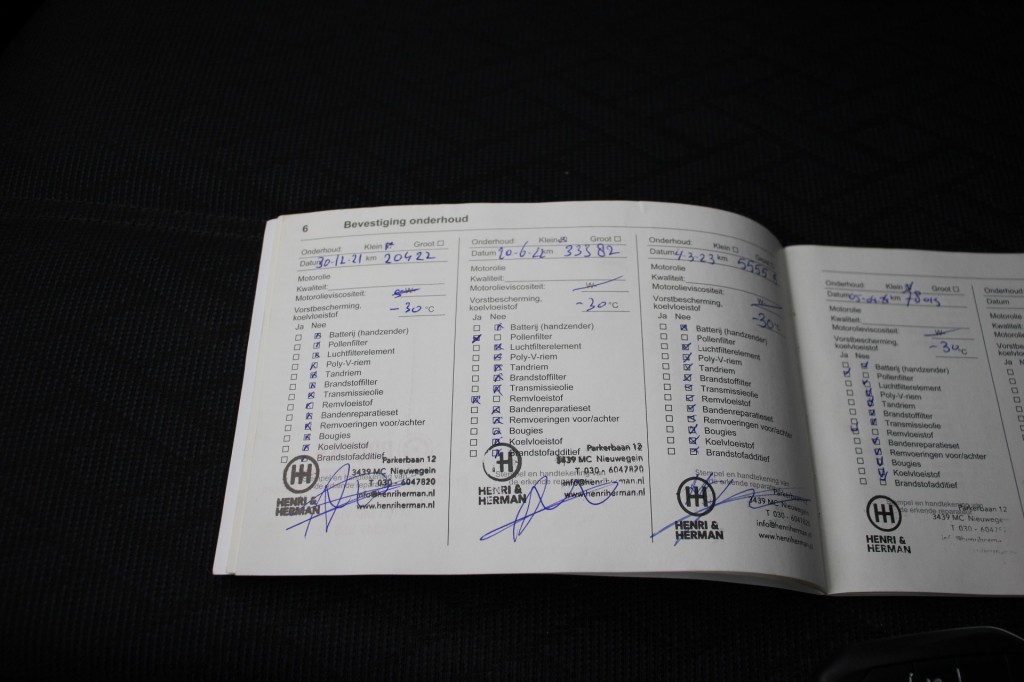 6 Bevestiging onderhoud
Onderhoud: Klein Groot
Datum 30-12-21 km 20422
Motorolie
Kwaliteit:
Motorolieviscositeit:
Vorstbescherming, koelvloeistof -30 °C
Ja Nee
Batterij (handzender)
Pollenfilter
Luchtfilterelement
Poly-V-riem
Tandriem
Brandstoffilter
Transmissieolie
Remvloeistof
Bandenreparatieset
Remvoeringen voor/achter
Bougies
Koelvloeistof
Brandstofadditief
Parkerbaan 12
3439 MC Nieuwegein
T. 030 - 6047820
info@henriherman.nl
www.henriherman.nl
HENRI & HERMAN
Onderhoud: Klein Groot
Datum 20-6-22 km 33382
Motorolie
Kwaliteit:
Motorolieviscositeit: W
Vorstbescherming, koelvloeistof -30 °C
Ja Nee
Batterij (handzender)
Pollenfilter
Luchtfilterelement
Poly-V-riem
Tandriem
Brandstoffilter
Transmissieolie
Remvloeistof
Bandenreparatieset
Remvoeringen voor/achter
Bougies
Koelvloeistof
Brandstofadditief
Stempel en handtekening van
de erkende reparateur
Parkerbaan 12
3439 MC Nieuwegein
T. 030 - 6047820
www.henriherman.nl
HENRI & HERMAN
Onderhoud: Klein Groot
Datum km
Motorolie
Kwaliteit:
Motorolieviscositeit: W
Vorstbescherming, koelvloeistof -30°C
Ja Nee
Batterij (handzender)
Pollenfilter
Luchtfilterelement
Poly-V-riem
Tandriem
Brandstoffilter
Transmissieolie
Remvloeistof
Bandenreparatieset
Remvoeringen voor/achter
Bougies
Koelvloeistof
Brandstofadditief
3439 MC Nieuwegein
info@henriherman.nl
www.henriherman.nl
HENRI & HERMAN
Onderhoud: Klein Groot
Datum
Motorolie
Kwaliteit:
Motorolieviscositeit: W
Vorstbescherming, koelvloeistof
Ja Nee
Batterij (handzender)
Pollenfilter
Luchtfilterelement
Poly-V-riem
Tandriem
Brandstoffilter
Transmissieolie
Remvloeistof
Bandenreparatieset
Remvoeringen voor/achter
Bougies
Koelvloeistof
Brandstofadditief
Parkerbaan 12
3439 MC
T 030 -
HENRI & HERMAN